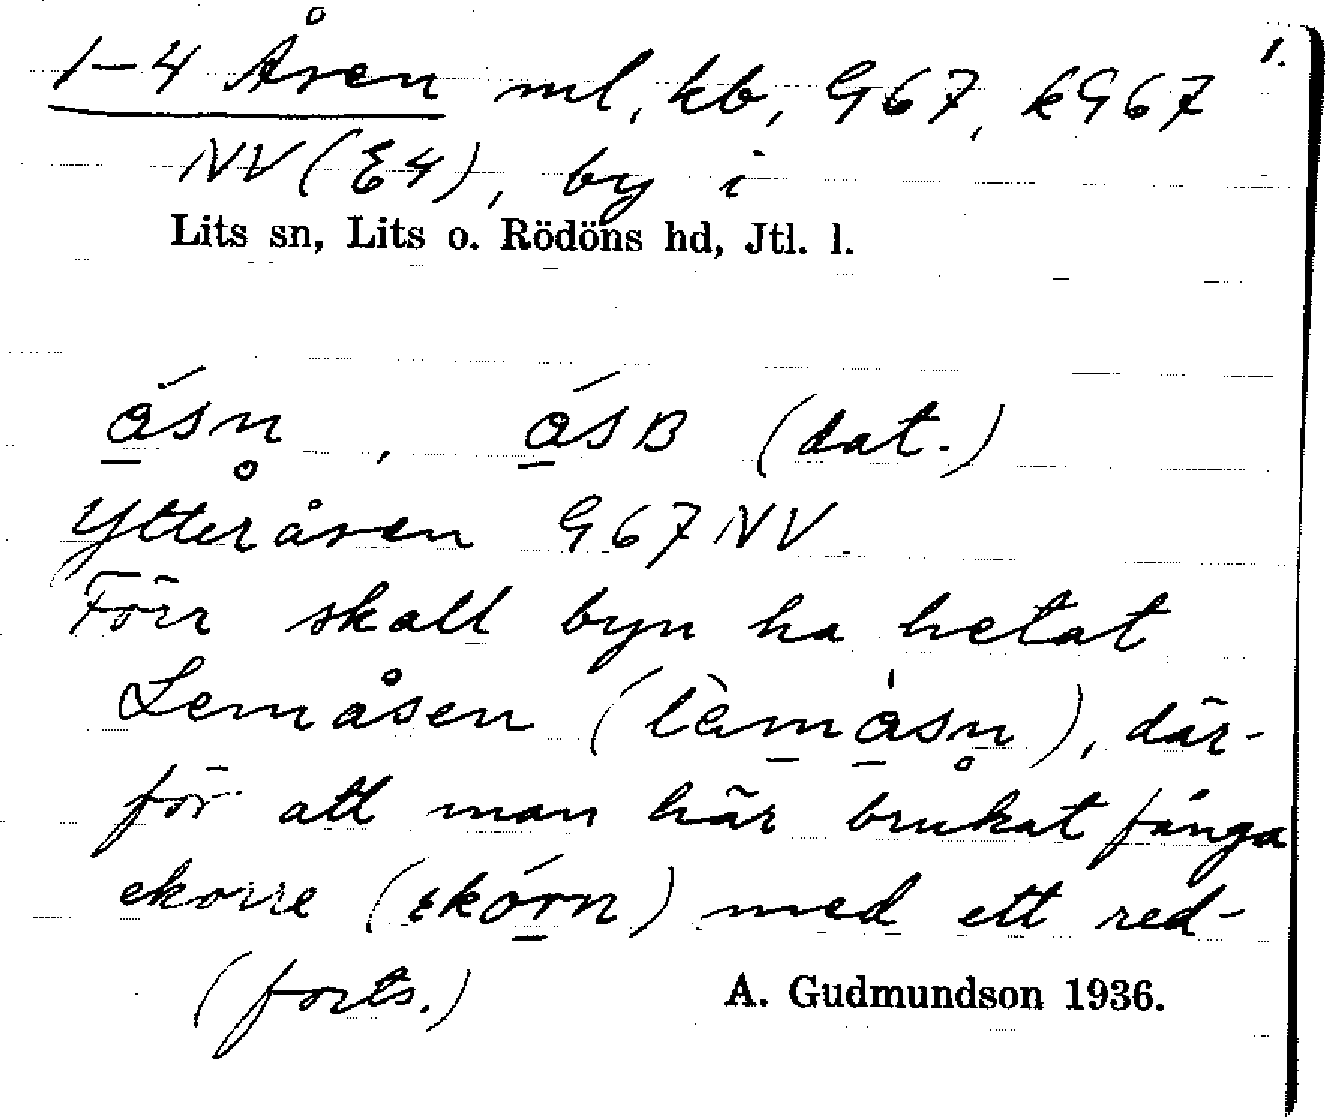 1.
1-4 Åsen ml, kb, 967, k967
NV (E4), by i
Lits sn, Lits o. Rödöns hd, Jtl. l.
ásn̥, ásʙ (dat.)
Ytteråsen 967 NV
Förr skall byn ha hetat
Lemåsen (lèmásn̥), där-
för att man här brukat fånga
ekorre (ɛkórn) med ett red-
(forts.)
A. Gudmundson 1936.